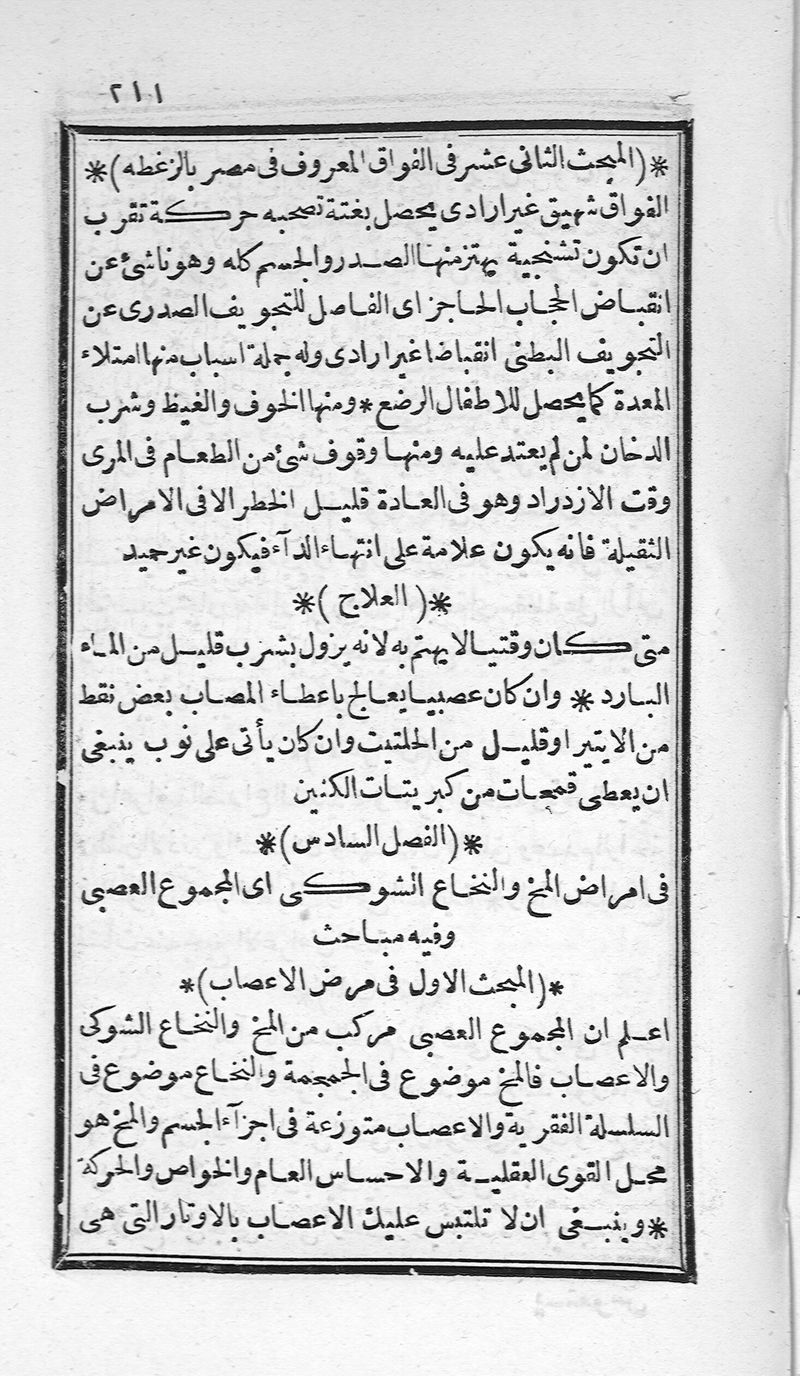 ٢١١
*(المبحث الثانى عشر فى الفواق المعروف فى مصر بالزغطه)*
الفواق شهيق غير ارادى يحصل بغتة تصحبه حركة تقرب
ان تكون تشنجية يهتز منها الصدر والجسم كله وهو ناشئ عن
انقباض الحجاب الحاجز اى الفاصل للتجويف الصدرى عن
التجويف البطنى انقباضا غير ارادى وله جملة اسباب منها امتلاء
المعدة كما يحصل للاطفال الرضع * ومنها الخوف والغيظ وشرب
الدخان لمن لم يعتد عليه ومنها وقوف شئ من الطعام فى المرى
وقت الازدراد وهو فى العادة قليل الخطر الا فى الامراض
الثقيلة فانه يكون علامة على انتهاء الدآء فيكون غير حميد
*(العلاج)*
متى كان وقتيا لا يهتم به لانه يزول بشرب قليل من الماء
البارد * وان كان عصبيا يعالج باعطاء المصاب بعض نقط
من الايتير او قليل من الحلتيت وان كان يأتى على نوب ينبغى
ان يعطى قمعات من كبريتات الكنين
*(الفصل السادس)*
فى امراض المخ والنخاع الشوكى اى المجموع العصبى
وفيه مباحث
*(المبحث الاول فى مرض الاعصاب)*
اعلم ان المجموع العصبى مركب من المخ والنخاع الشوكى
والاعصاب فالمخ موضوع فى الجمجمة والنخاع موضوع فى
السلسلة الفقرية والاعصاب متوزعة فى اجزآء الجسم والمخ هو
محل القوى العقلية والاحساس العام والخواص والحركة
* وينبغى ان لا تلتبس عليك الاعصاب بالاوتار التى هى